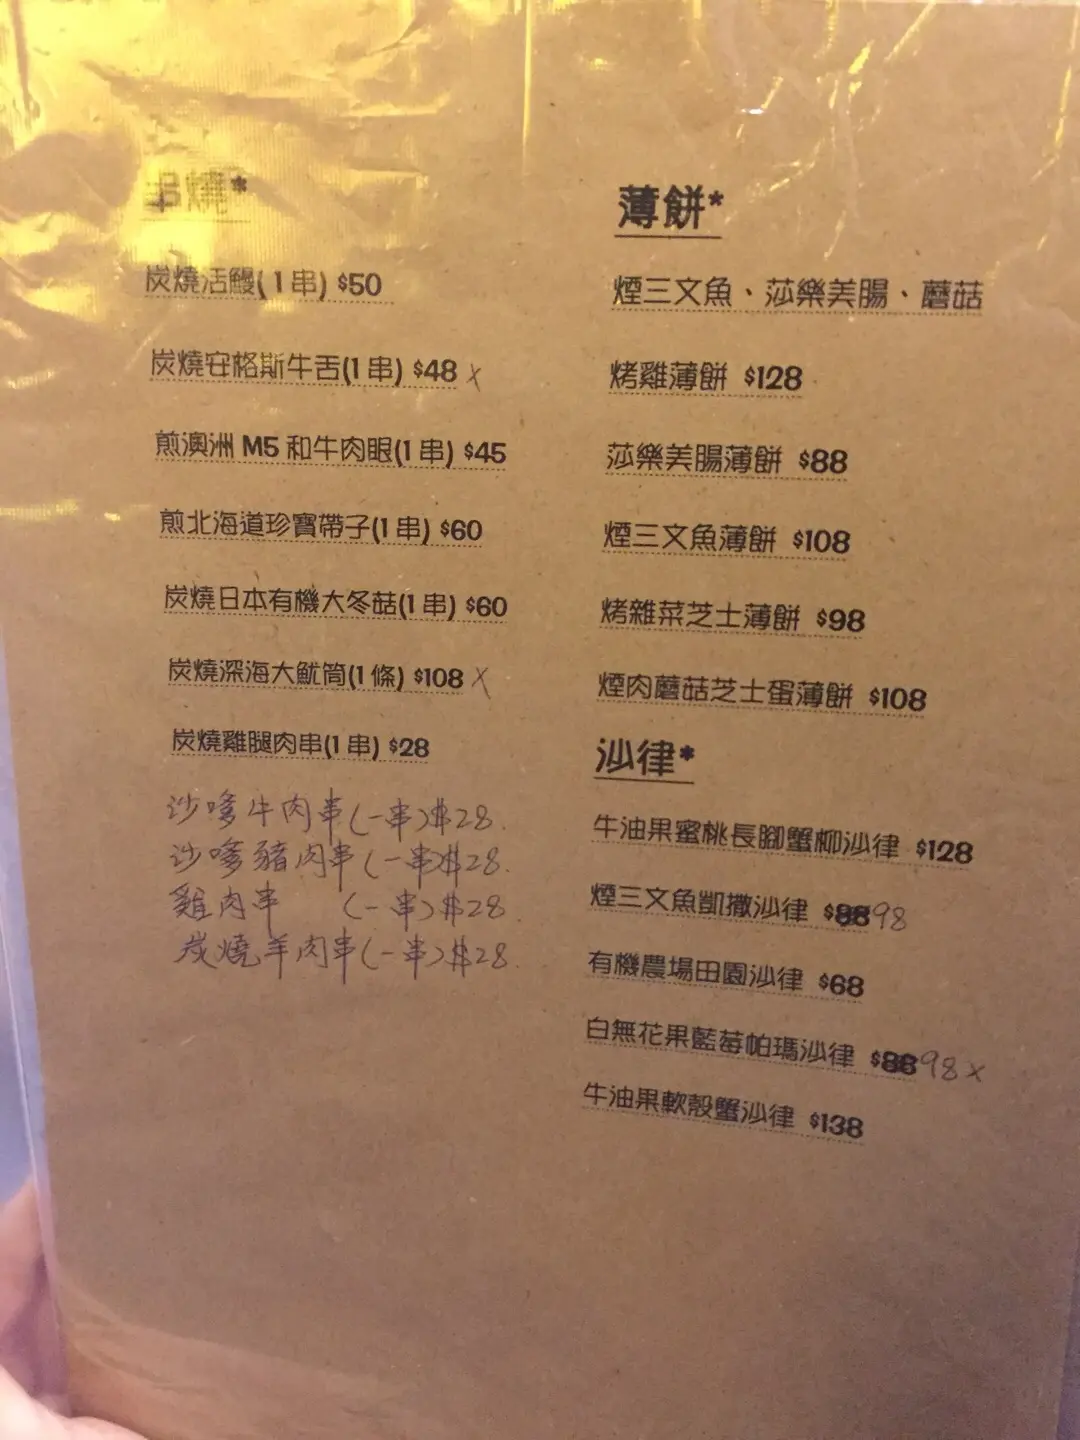 串燒*
炭燒活鰻(1串) $50
炭燒安格斯牛舌(1串) $48 x
煎澳洲 M5 和牛肉眼(1串) $45
煎北海道珍寶帶子(1串) $60
炭燒日本有機大冬菇(1串) $60
炭燒深海大魷筒(1條) $108 x
炭燒雞腿肉串(1串) $28
沙嗲牛肉串(一串)$28.
沙嗲豬肉串(一串)$28.
雞肉串 (一串)$28.
炭燒羊肉串(一串)$28.
薄餅*
煙三文魚、莎樂美腸、蘑菇
烤雞薄餅 $128
莎樂美腸薄餅 $88
煙三文魚薄餅 $108
烤雜菜芝士薄餅 $98
煙肉蘑菇芝士蛋薄餅 $108
沙律*
牛油果蜜桃長腳蟹柳沙律 $128
煙三文魚凱撒沙律 $88 98
有機農場田園沙律 $68
白無花果藍莓帕瑪沙律 $88 98 x
牛油果軟殼蟹沙律 $138